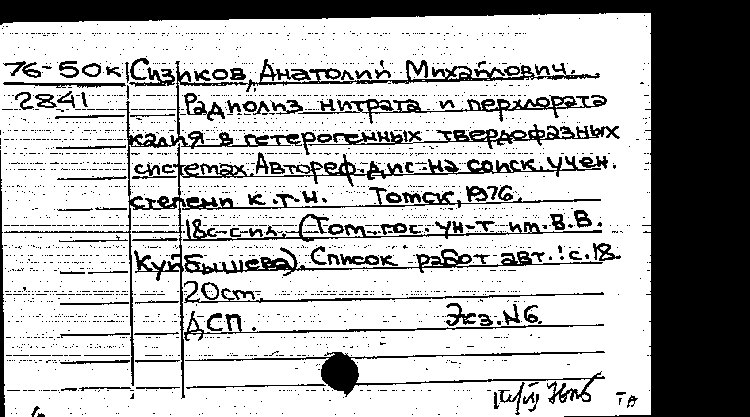 76-50к Сизиков, Анатолий Михайлович.
2841 Радиолиз нитрата и перхлората
калия в гетерогенных твердофазных
системах. Автореф. дис. на соиск. учен.
степени к.т.н. Томск, 1976.
18с. с ил. (Том. гос. ун-т им. В.В.
Куйбышева). Список работ авт.: с.18.
20см.
ДСП. Экз. №6.
ТА